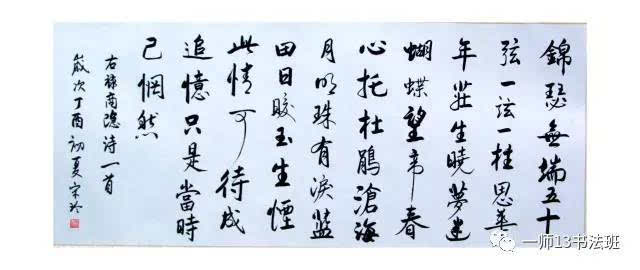 錦瑟無端五十
弦一弦一柱思華
年莊生曉夢迷
蝴蝶望帝春
心托杜鵑滄海
月明珠有淚藍
田日暖玉生煙
此情可待成
追憶只是當時
已惘然
右錄商隱詩一首
歲次丁酉初夏宋玲
一师13书法班